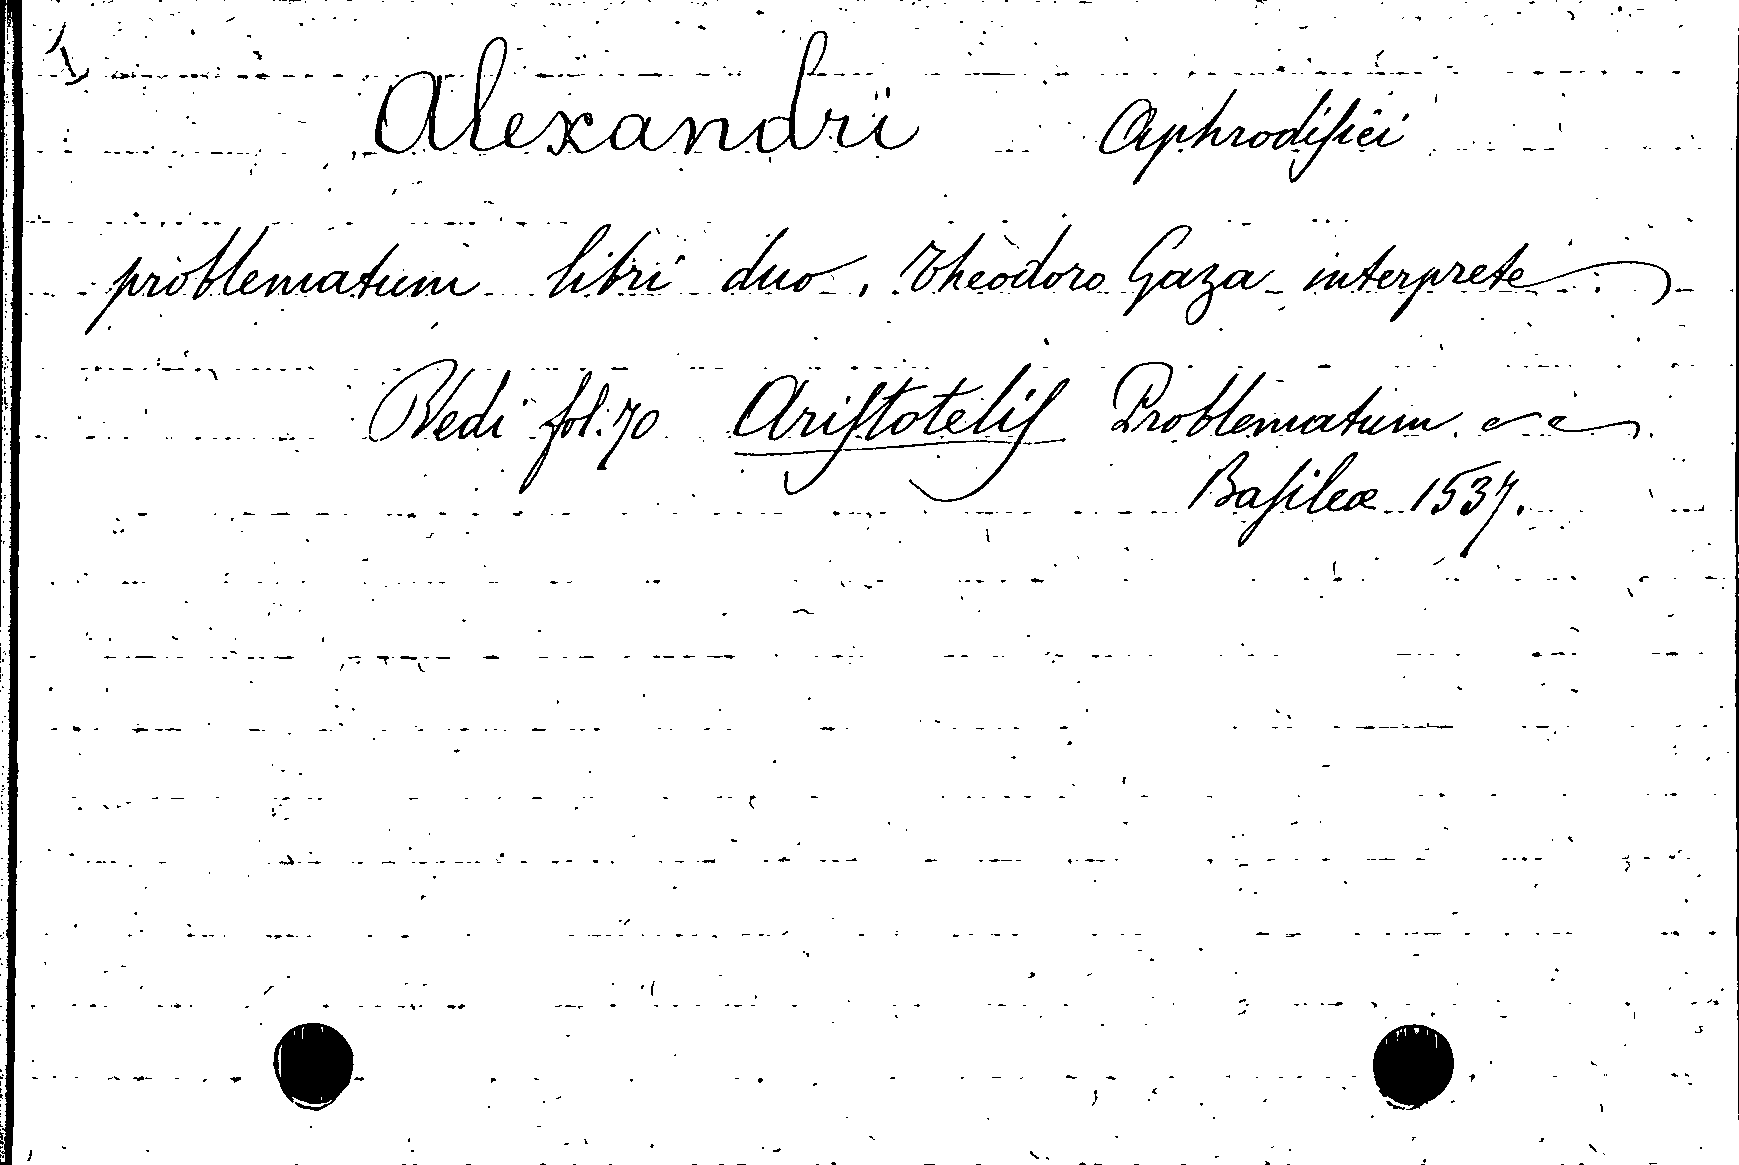 1
Alexandri Aphrodiſiei
problematum libri duo, Theodoro Gaza interprete.
Vedi fol: 70 Ariſtoteliſ Problematum
Baſileæ 1537.